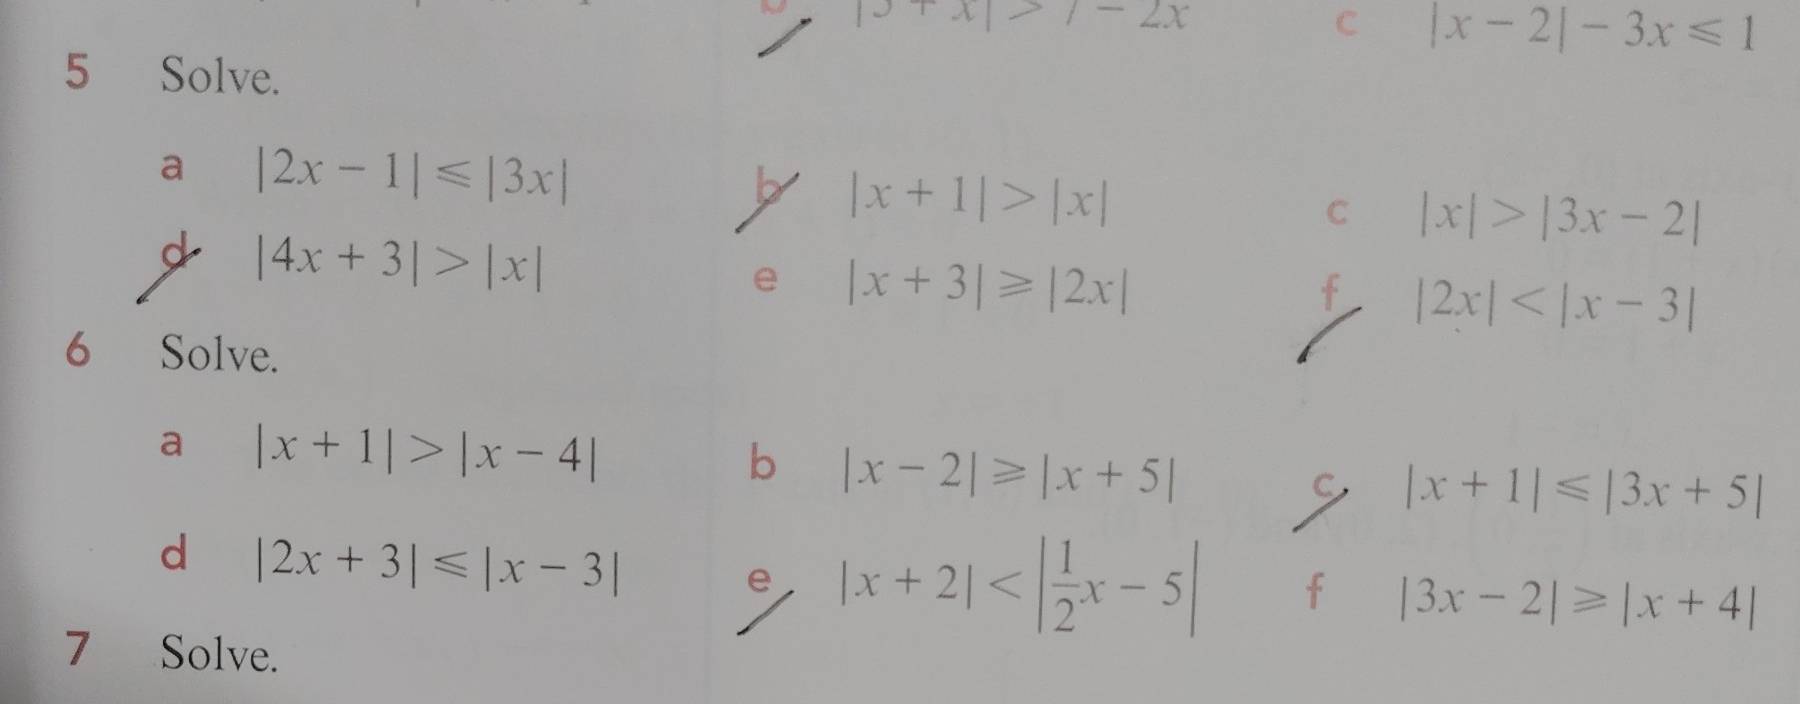 b |5 + x| > 7 − 2x c |x − 2| − 3x ⩽ 1
5 Solve.
a |2x − 1| ⩽ |3x| b |x + 1| > |x| c |x| > |3x − 2|
d |4x + 3| > |x| e |x + 3| ⩾ |2x| f |2x| < |x − 3|
6 Solve.
a |x + 1| > |x − 4| b |x − 2| ⩾ |x + 5| c |x + 1| ⩽ |3x + 5|
d |2x + 3| ⩽ |x − 3| e |x + 2| < |1/2 x − 5| f |3x − 2| ⩾ |x + 4|
7 Solve.